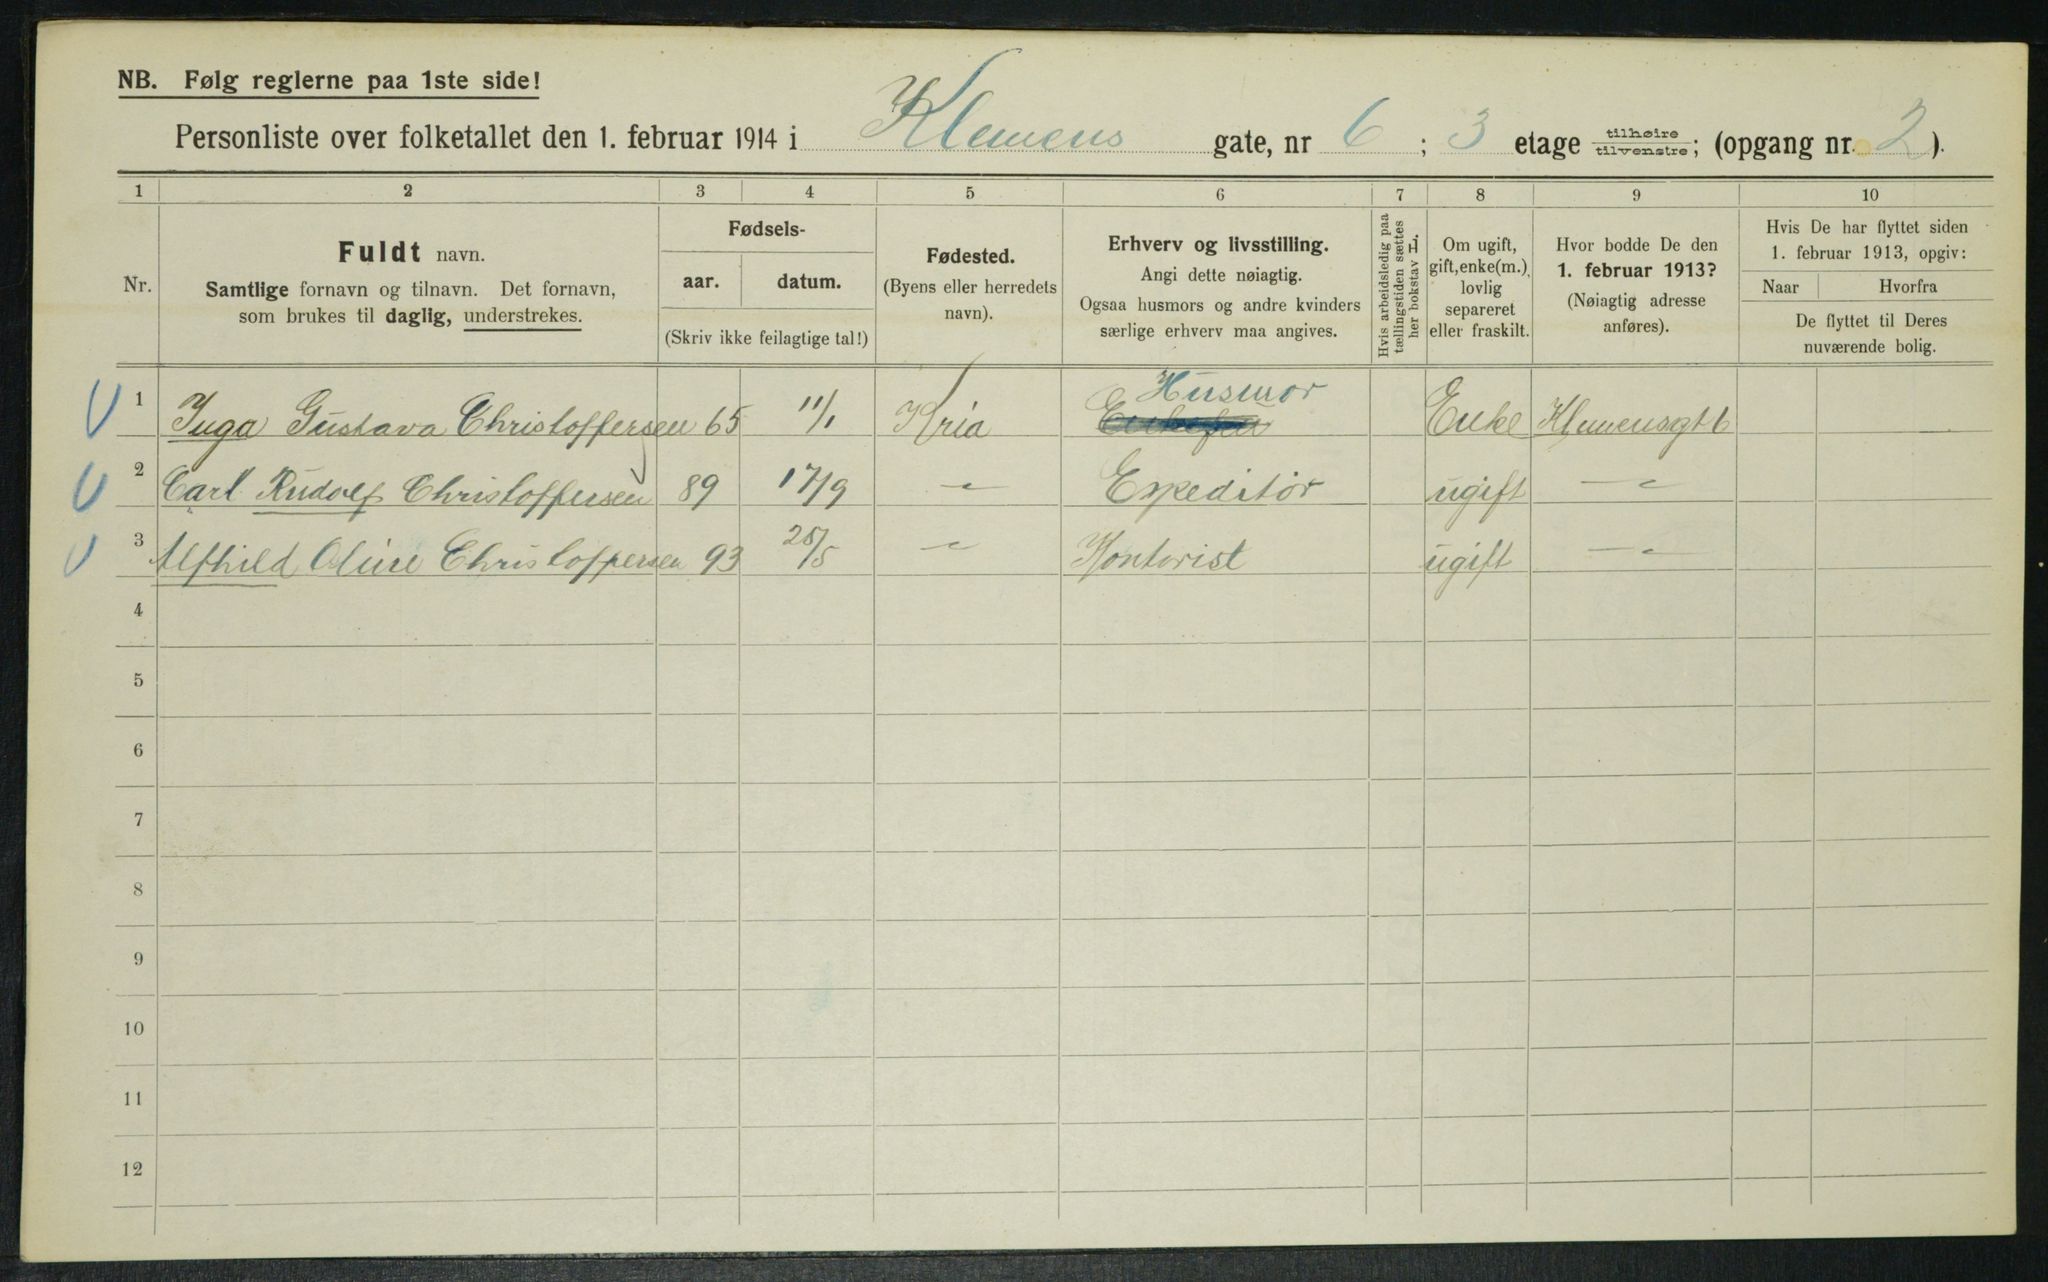 NB. Følg reglerne paa 1ste side!
Personliste over folketallet den 1. februar 1914 i Klemens gate, nr 6 ; 3 etage tilhøire/tilvenstre; (opgang nr. 2).
1 2 3 4 5 6 7 8 9 10
Nr.
Fuldt navn.
Samtlige fornavn og tilnavn. Det fornavn,
som brukes til daglig, understrekes.
Fødsels-
aar. datum.
(Skriv ikke feilagtige tal!)
Fødested.
(Byens eller herredets
navn).
Erhverv og livsstilling.
Angi dette nøiagtig.
Ogsaa husmors og andre kvinders
særlige erhverv maa angives.
Hvis arbeidsledig paa
tællingstiden sættes
her bokstav L.
Om ugift,
gift, enke(m.),
lovlig
separeret
eller fraskilt.
Hvor bodde De den
1. februar 1913?
(Nøiagtig adresse
anføres).
Hvis De har flyttet siden
1. februar 1913, opgiv:
Naar Hvorfra
De flyttet til Deres
nuværende bolig.
Husmor
1 Inga Gustava Christoffersen 65 11/1 Kria Enke Klemensgt 6
2 Carl Rudolf Christoffersen 89 17/9 -"- Expeditør ugift -"-
3 Alfhild Oline Christoffersen 93 25/5 -"- Kontorist ugift -"-
4
5
6
7
8
9
10
11
12